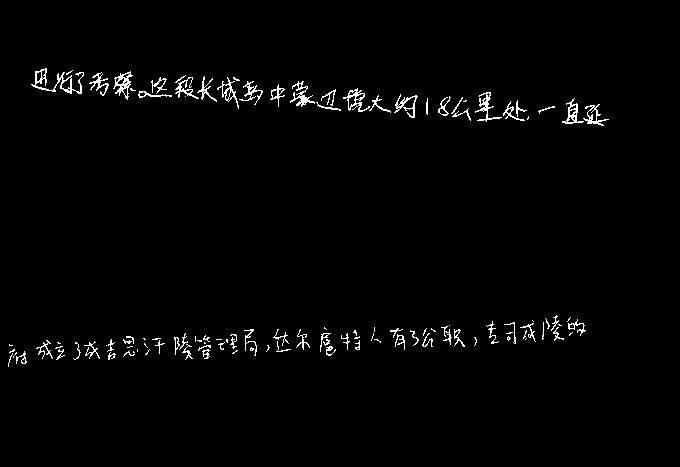 进行了考察。这段长城离中蒙边境大约18公里处,一直延
府成立了成吉思汗陵管理局,达尔扈特人有了公职,专司成陵的